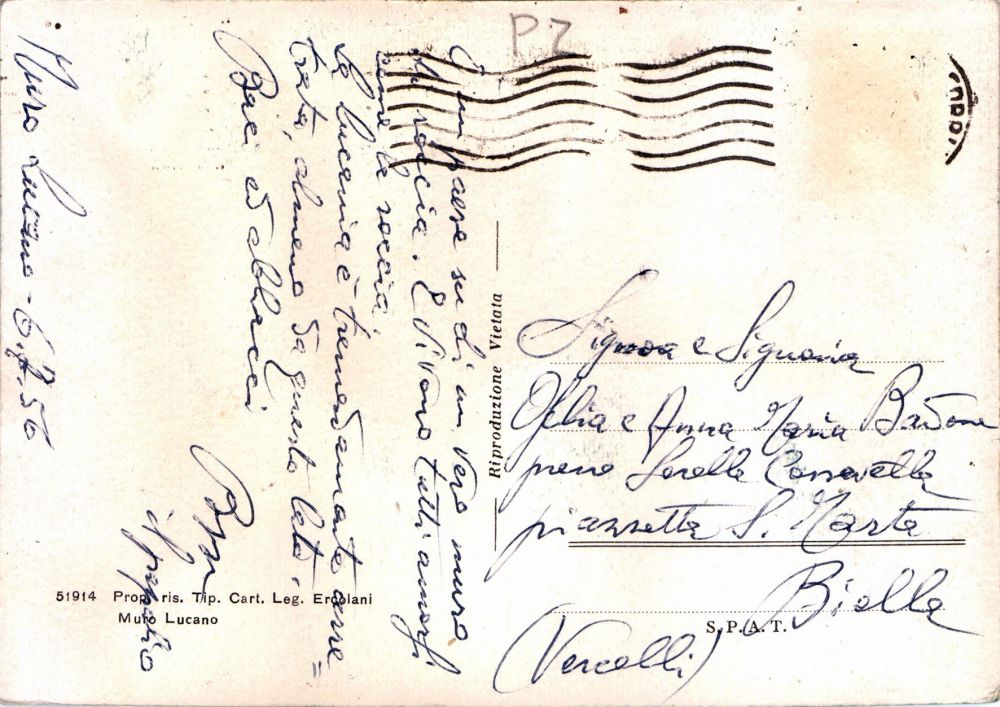 PZ
Muro Lucano - 6.7.50
È un paese su di un vero muro
di roccia. E vivono tutti amorfi
come la roccia.
La Lucania è tremendamente arre=
trata, almeno da questo lato.
Baci ed abbracci
il papalio
Signora e Signorina
Ofelia e Anna Maria Badone
presso Sorelle
piazzetta S. Marta
Biella
(Vercelli)
Riproduzione Vietata
51914 Propr. ris. Tip. Cart. Leg. Ercolani
Muro Lucano
S.P.A.T.